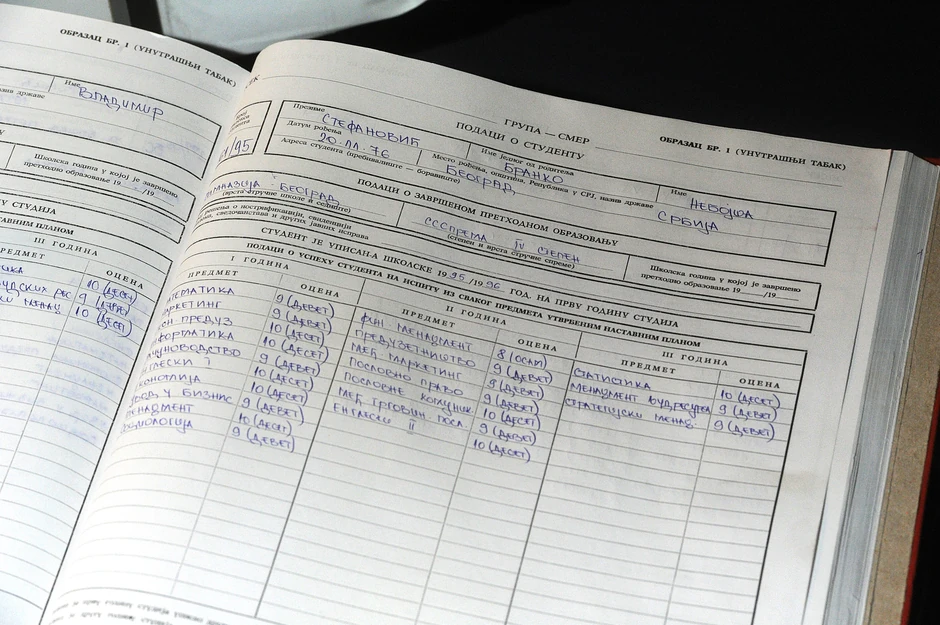 ОБРАЗАЦ БР. 1 (УНУТРАШЊИ ТАБАК)
Име
ВЛАДИМИР
државе
Школска година у којој је завршено
претходно образовање 19 /19
СТУДИЈА
НАСТАВНИМ ПЛАНОМ
III ГОДИНА
ПРЕДМЕТ
ОЦЕНА
10 (ДЕСЕТ)
9 (ДЕВЕТ)
10 (ДЕСЕТ)
ГРУПА — СМЕР
ПОДАЦИ О СТУДЕНТУ
ОБРАЗАЦ БР. 1 (УНУТРАШЊИ ТАБАК)
/95
Презиме
СТЕФАНОВИЋ
Име једног од родитеља
БРАНКО
Име
НЕБОЈША
Датум рођења
20.11.76
Место рођења, општина, Република у СРЈ, назив државе
БЕОГРАД,
СРБИЈА
Адреса студента (пребивалиште — боравиште)
ПОДАЦИ О ЗАВРШЕНОМ ПРЕТХОДНОМ ОБРАЗОВАЊУ
ГИМНАЗИЈА - БЕОГРАД
(врста стручне школе и седиште)
ССС ПРЕМА IV СТЕПЕН
(степен и врста стручне спреме)
Школска година у којој је завршено
претходно образовање 19 /19
решења о нострификацији, сведеници
сведочанстава и других јавних исправа
СТУДЕНТ ЈЕ УПИСАН/А ШКОЛСКЕ 1995/1996 ГОД. НА ПРВУ ГОДИНУ СТУДИЈА
ПОДАЦИ О УСПЕХУ СТУДЕНТА НА ИСПИТУ ИЗ СВАКОГ ПРЕДМЕТА УТВРЂЕНИМ НАСТАВНИМ ПЛАНОМ
I ГОДИНА
ПРЕДМЕТ
ОЦЕНА
МАТЕМАТИКА 9 (ДЕВЕТ)
МАРКЕТИНГ 9 (ДЕВЕТ)
ПРЕДУЗ 10 (ДЕСЕТ)
ИНФОРМАТИКА 10 (ДЕСЕТ)
РАЧУНОВОДСТВО 9 (ДЕВЕТ)
ЕНГЛЕСКИ I 10 (ДЕСЕТ)
ЕКОНОМИЈА 10 (ДЕСЕТ)
УВОД У БИЗНИС 9 (ДЕВЕТ)
МЕНАЏМЕНТ 10 (ДЕСЕТ)
СОЦИОЛОГИЈА 9 (ДЕВЕТ)
II ГОДИНА
ПРЕДМЕТ
ОЦЕНА
ФИН. МЕНАЏМЕНТ 8 (ОСАМ)
ПРЕДУЗЕТНИШТВО 9 (ДЕВЕТ)
МЕЂ. МАРКЕТИНГ 10 (ДЕСЕТ)
ПОСЛОВНО ПРАВО 9 (ДЕВЕТ)
ПОСЛОВНЕ КОМУНИК. 10 (ДЕСЕТ)
МЕЂ. ТРГОВИН. ПОСЛ. 9 (ДЕВЕТ)
ЕНГЛЕСКИ II 10 (ДЕСЕТ)
III ГОДИНА
ПРЕДМЕТ
ОЦЕНА
СТАТИСТИКА 10 (ДЕСЕТ)
МЕНАЏМЕНТ ЉУД. РЕСУРСА 9 (ДЕВЕТ)
СТРАТЕГИЈСКИ МЕНАЏ. 9 (ДЕВЕТ)